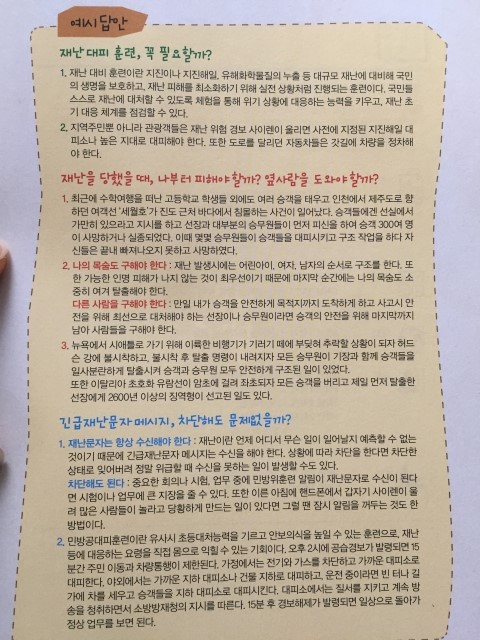 예시 답안
재난 대피 훈련, 꼭 필요할까?
1. 재난 대비 훈련이란 지진이나 지진해일, 유해화학물질의 누출 등 대규모 재난에 대비해 국민
의 생명을 보호하고, 재난 피해를 최소화하기 위해 실전 상황처럼 진행되는 훈련이다. 국민들
스스로 재난에 대처할 수 있도록 체험을 통해 위기 상황에 대응하는 능력을 키우고, 재난 초
기 대응 체계를 점검할 수 있다.
2. 지역주민뿐 아니라 관광객들은 재난 위험 경보 사이렌이 울리면 사전에 지정된 지진해일 대
피소나 높은 지대로 대피해야 한다. 또한 도로를 달리던 자동차들은 갓길에 차량을 정차해
야 한다.
재난을 당했을 때, 나부터 피해야 할까? 옆사람을 도와야 할까?
1. 최근에 수학여행을 떠난 고등학교 학생들 외에도 여러 승객을 태우고 인천에서 제주도로 향
하던 여객선 '세월호'가 진도 근처 바다에서 침몰하는 사건이 일어났다. 승객들에겐 선실에서
가만히 있으라고 지시를 하고 선장과 대부분의 승무원들이 먼저 피신을 하여 승객 300여 명
이 사망하거나 실종되었다. 이때 몇몇 승무원들이 승객들을 대피시키고 구조 작업을 하다 자
신들은 끝내 빠져나오지 못하고 사망하였다.
2. 나의 목숨도 구해야 한다 : 재난 발생시에는 어린아이, 여자, 남자의 순서로 구조를 한다. 또
한 가능한 인명 피해가 나지 않는 것이 최우선이기 때문에 마지막 순간에는 나의 목숨도 소
중히 여겨 탈출해야 한다.
다른 사람을 구해야 한다 : 만일 내가 승객을 안전하게 목적지까지 도착하게 하고 사고시 안
전을 위해 최선으로 대처해야 하는 선장이나 승무원이라면 승객의 안전을 위해 마지막까지
남아 사람들을 구해야 한다.
3. 뉴욕에서 시애틀로 가기 위해 이륙한 비행기가 기러기 떼에 부딪혀 추락할 상황이 되자 허드
슨 강에 불시착하고, 불시착 후 탈출 명령이 내려지자 모든 승무원이 기장과 함께 승객들을
일사분란하게 탈출시켜 승객과 승무원 모두 안전하게 구조된 일이 있었다.
또한 이탈리아 초호화 유람선이 암초에 걸려 좌초되자 모든 승객을 버리고 제일 먼저 탈출한
선장에게 2600년 이상의 징역형이 선고된 일도 있다.
긴급재난문자 메시지, 차단해도 문제없을까?
1. 재난문자는 항상 수신해야 한다 : 재난이란 언제 어디서 무슨 일이 일어날지 예측할 수 없는
것이기 때문에 긴급재난문자 메시지는 수신을 해야 한다. 상황에 따라 차단을 한다면 차단한
상태로 잊어버려 정말 위급할 때 수신을 못하는 일이 발생할 수도 있다.
차단해도 된다 : 중요한 회의나 시험, 업무 중에 민방위훈련 알림이 재난문자로 수신이 된다
면 시험이나 업무에 큰 지장을 줄 수 있다. 또한 이른 아침에 핸드폰에서 갑자기 사이렌이 울
려 많은 사람들이 놀라고 당황하게 만드는 일이 있다면 그럴 땐 잠시 알림을 꺼두는 것도 한
방법이다.
2. 민방공대피훈련이란 유사시 초등대처능력을 기르고 안보의식을 높일 수 있는 훈련으로, 재난
등에 대응하는 요령을 직접 몸으로 익힐 수 있는 기회이다. 오후 2시에 공습경보가 발령되면 15
분간 주민 이동과 차량통행이 제한된다. 가정에서는 전기와 가스를 차단하고 가까운 대피소로
대피한다. 야외에서는 가까운 지하 대피소나 건물 지하로 대피하고, 운전 중이라면 빈 터나 길
가에 차를 세우고 승객들을 지하 대피소로 대피시킨다. 대피소에서는 질서를 지키고 계속 방
송을 청취하면서 소방방재청의 지시를 따른다. 15분 후 경보해제가 발령되면 일상으로 돌아가
정상 업무를 보면 된다.